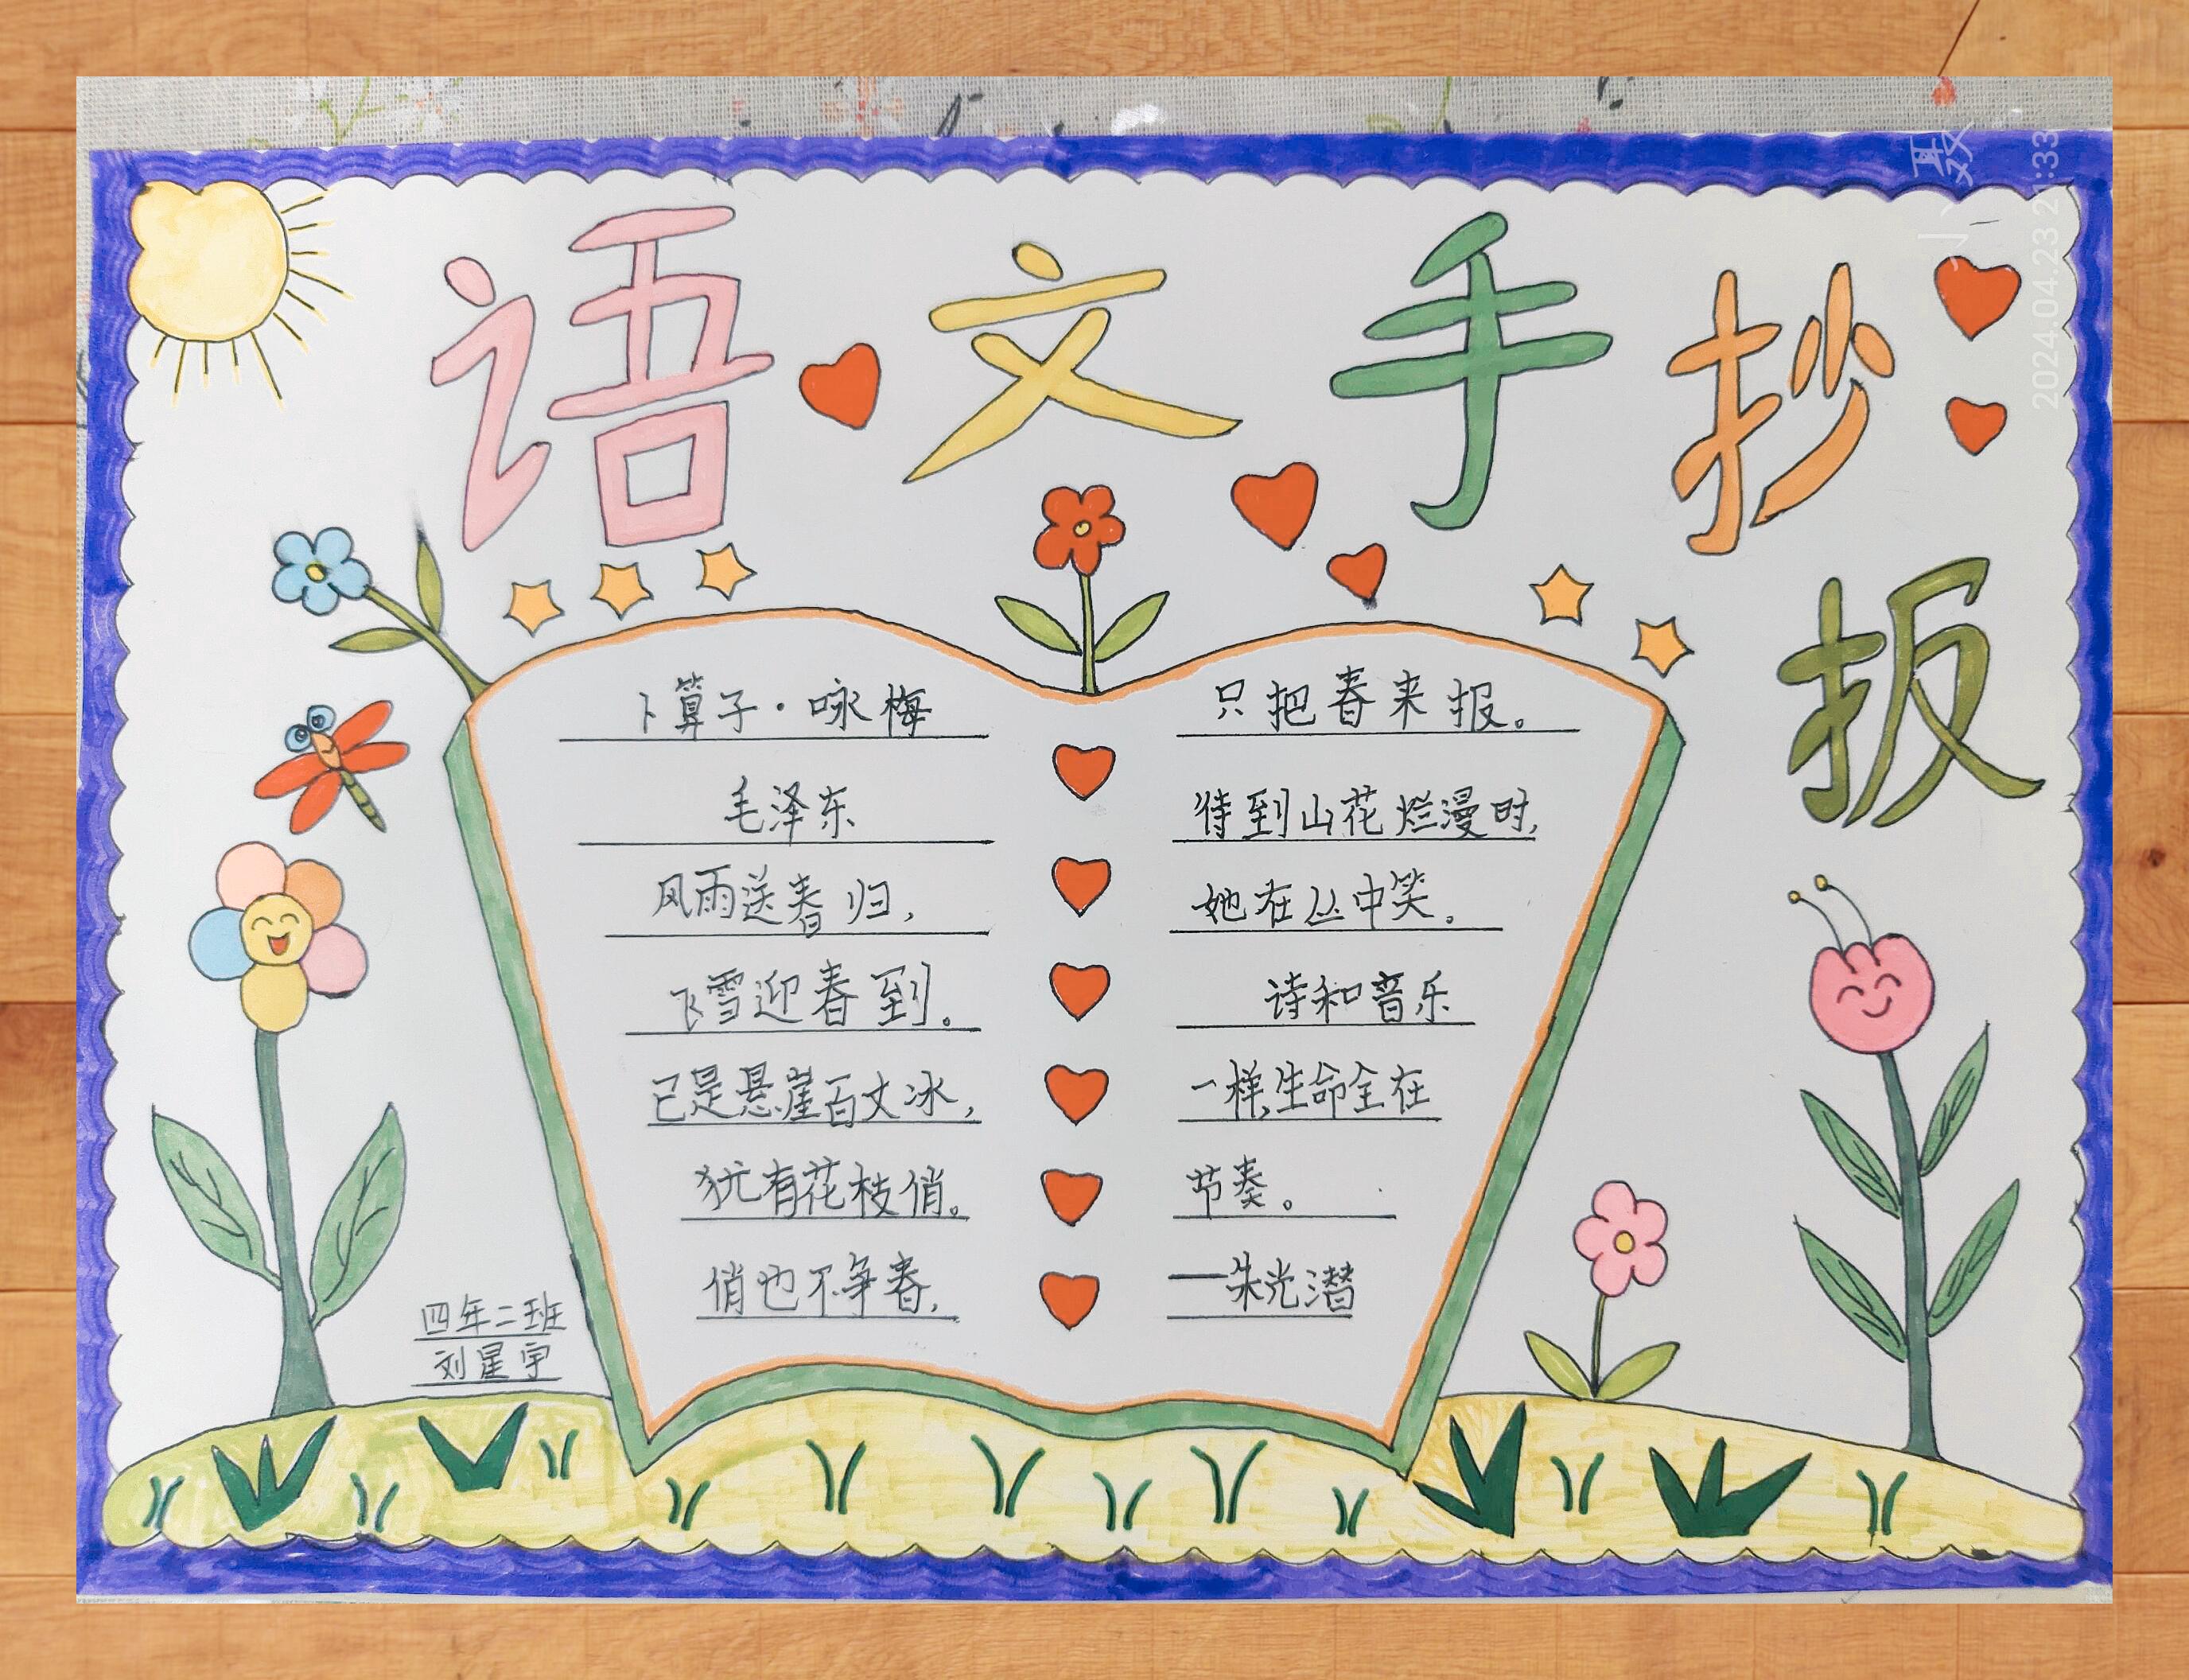 语文手抄扳
卜算子·咏梅
毛泽东
风雨送春归,
飞雪迎春到。
已是悬崖百丈冰,
犹有花枝俏。
俏也不争春,
只把春来报。
待到山花烂漫时,
她在丛中笑。
诗和音乐
一样,生命全在
节奏。
——朱光潜
四年二班
刘星宇
2024.04.23 21:33